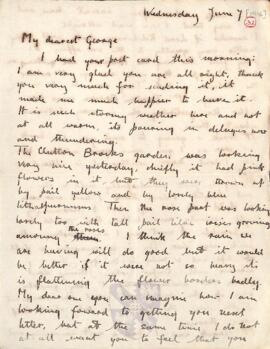 Wednesday June 7 [1916]
32
My dearest George
I had your post card this morning:
I am very glad you are all right, thank
you very much for sending it, it
made me much happier to have it.
It is such stormy weather here and not
at all warm, its pouring in deluges now
and thundering.
The Clutton Brocks garden was looking
very nice yesterday, chiefly it had pink
flowers in it but they were thrown up
by pale yellow and by lovely blue
lithospermums. Then the rose part was looking
lovely too with tall pale lilac irises growing
among the roses. I think the rain we
are having will do good but it would
be better if it was not so heavy its
is flattening the flower borders badly.
My dear one you can imagine how I am
looking forward to getting your next
letter, but at the same time I do not
at all want you to feel that you